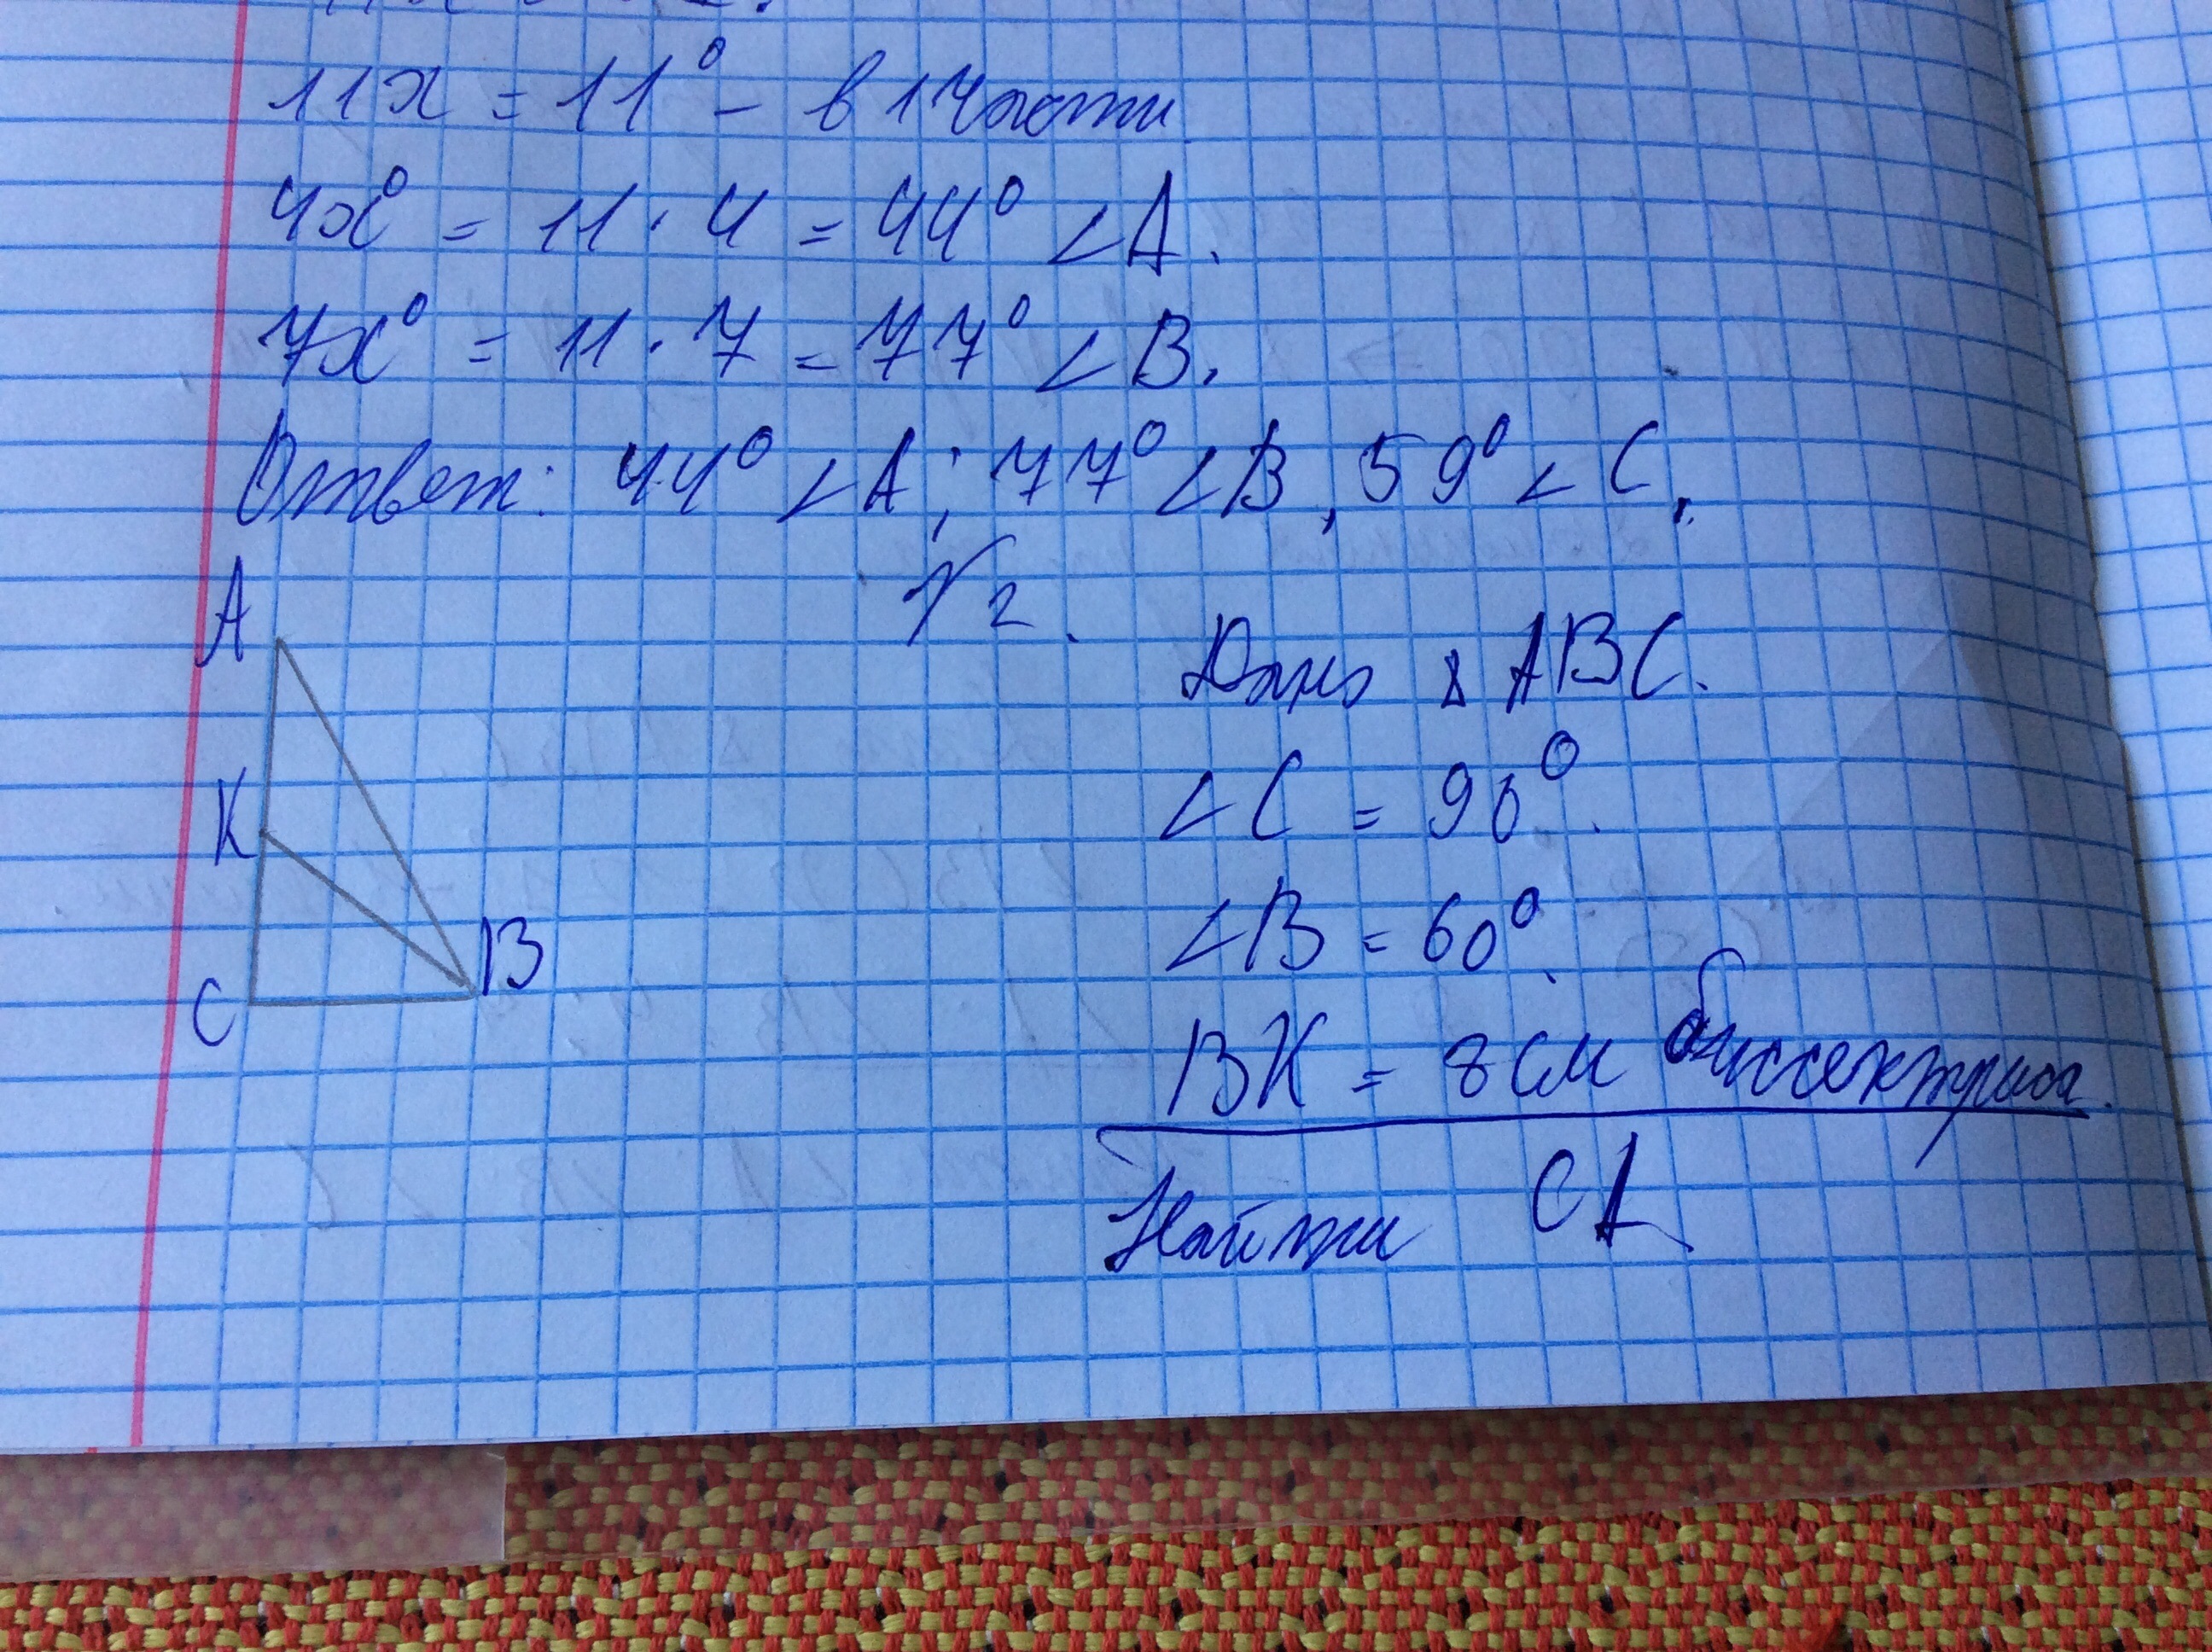 11x = 11° - в 1 части
4x° = 11 · 4 = 44° ∠A.
7x° = 11 · 7 = 77° ∠B.
Ответ: 44° ∠A; 77° ∠B, 59° ∠C.
№2.
A
K
C
B
Дано Δ ABC.
∠C = 90°.
∠B = 60°.
BK = 8 см биссектриса.
Найти CA